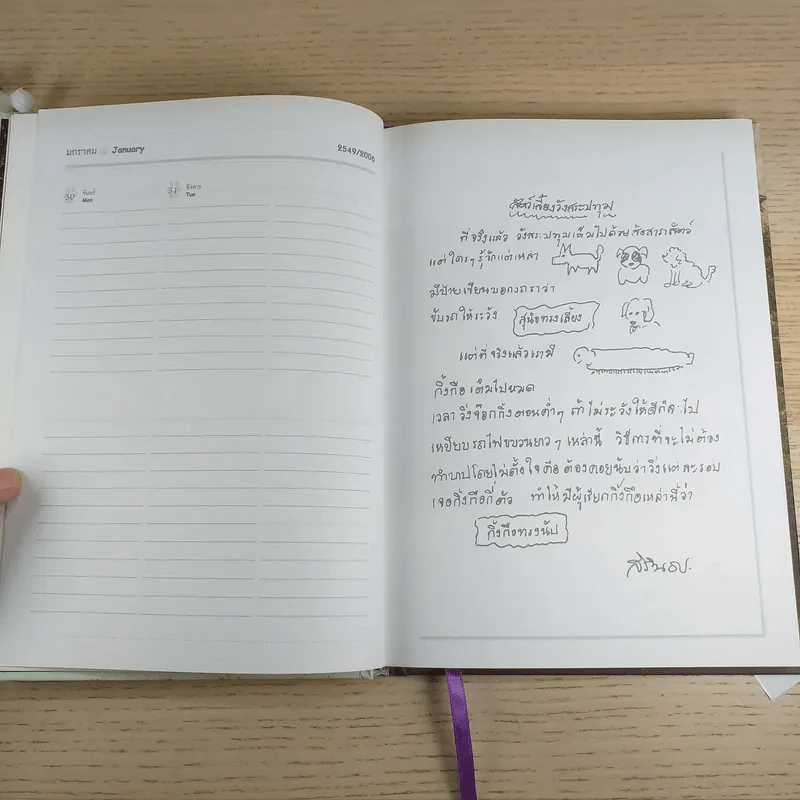 มกราคม January
2549/2006
30 จันทร์ Mon
31 อังคาร Tue
สัตว์เลี้ยงวังสระปทุม
ที่จริงแล้ว วังสระปทุมเต็มไปด้วย สิงสาราสัตว์
แต่ใครๆ รู้จักแต่เหล่า
มีป้ายเขียนบอกรถราว่า
ขับรถให้ระวัง สุนัขทรงเลี้ยง
แต่ที่จริงแล้วเรามี
กิ้งกือ เต็มไปหมด
เวลา วิ่งจ๊อกกิ้งตอนค่ำๆ ถ้าไม่ระวังให้ดีก็จะไป
เหยียบรถไฟขบวนยาวๆ เหล่านี้ วิธีการที่จะไม่ต้อง
ทำบาปโดยไม่ตั้งใจคือ ต้องคอยนับว่าวิ่งแต่ละรอบ
เจอกิ้งกือกี่ตัว ทำให้มีผู้เรียกกิ้งกือเหล่านี้ว่า
กิ้งกือทรงนับ
สิรินธร.